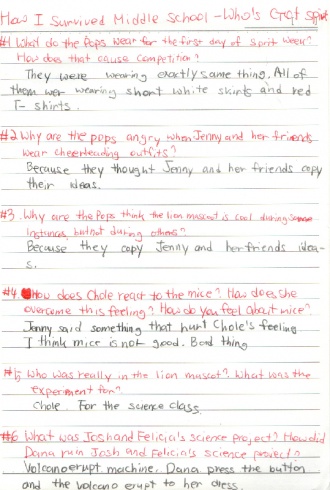 How I Survived Middle School - Who's Got Spirit
#1 What do the Pops wear for the first day of Spirit Week?
How does that cause competition?
They were wearing exactly same thing. All of
them wer wearing short white skirts and red
T-shirts.
#2 Why are the pops angry when Jenny and her friends
wear cheerleading outfits?
Because they thought Jenny and her friends copy
their ideas.
#3. Why are the Pops think the lion mascot is cool during some
instances, but not during others?
Because they copy Jenny and her friends idea-
s.
#4 How does Chole react to the mice? How does she
overcome this feeling? How do you feel about mice?
Jenny said something that hurt Chole's feeling
I think mice is not good. Bad thing
#5 Who was really in the lion mascot? What was the
experiment for?
Chole. For the science class.
#6 What was Josh and Felicia's science project? How did
Dana ruin Josh and Felicia's science project?
Volcano erupt machine. Dana press the button
and the volcano erupt to her dress.